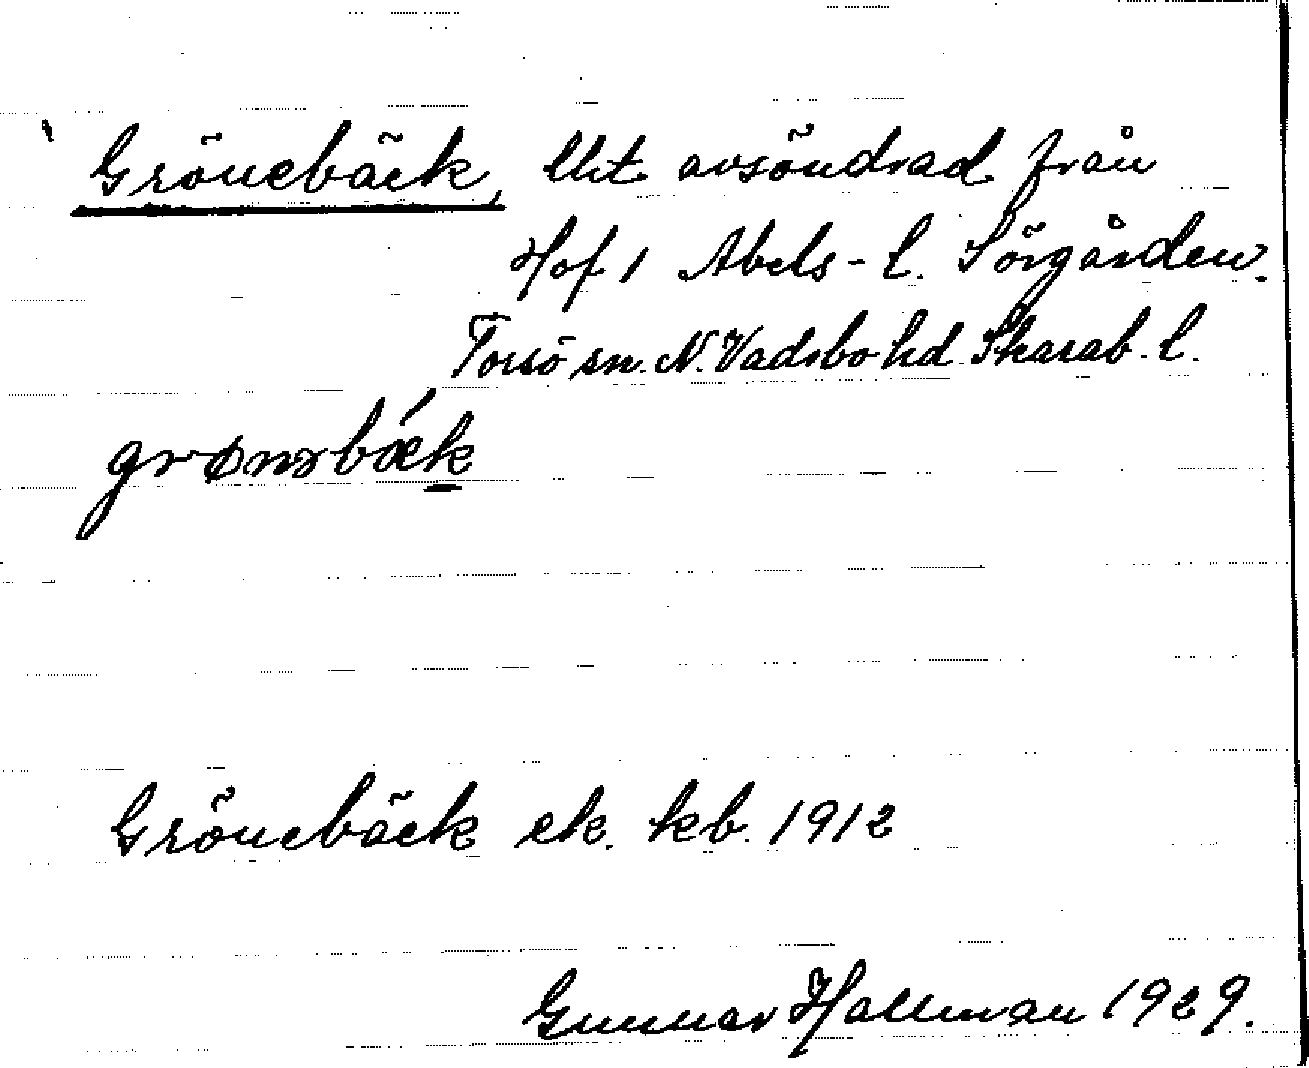 Grönebäck, lht avsöndrad från
Hof 1 Abels- l. Sörgården.
Torsö sn. N. Vadsbo hd Skarab. l.
grønəbǽk
Grönebäck ek. kb. 1912
Gunnar Hallman 1929.